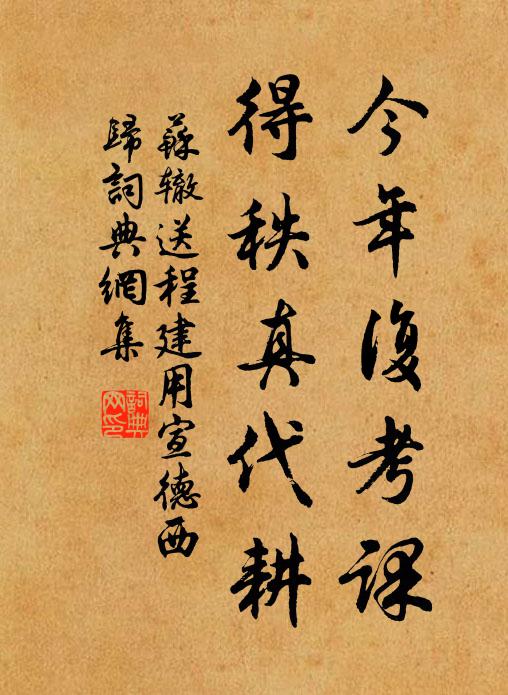 今年復考課
得秩真代耕
蘇轍送程建用宣德西
歸詞典網集
詞典
网印